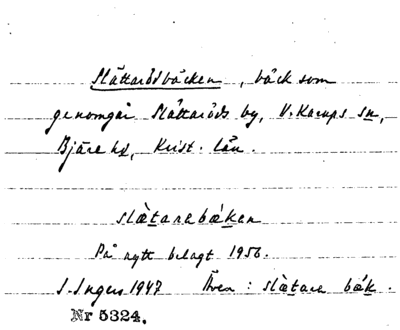 Slättarödsbäcken, bäck som
genomgår Slättaröds by, V. Karups sn,
Bjäre hd, Krist. län.
slæ̀tarabǽken
På nytt belagt 1956.
S. Ingers 1947 Även: slæ̀tara bǽk.
Nr 5324.